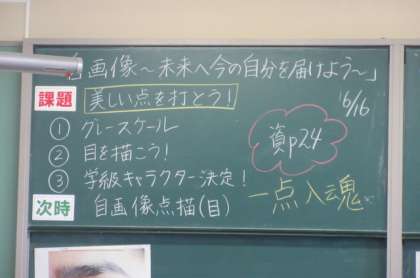 自画像〜未来へ今の自分を届けよう〜」
課題 美しい点を打とう!
6/16
① グレースケール
② 目を描こう!
③ 学級キャラクター決定!
資p24
一点入魂
次時 自画像点描(目)